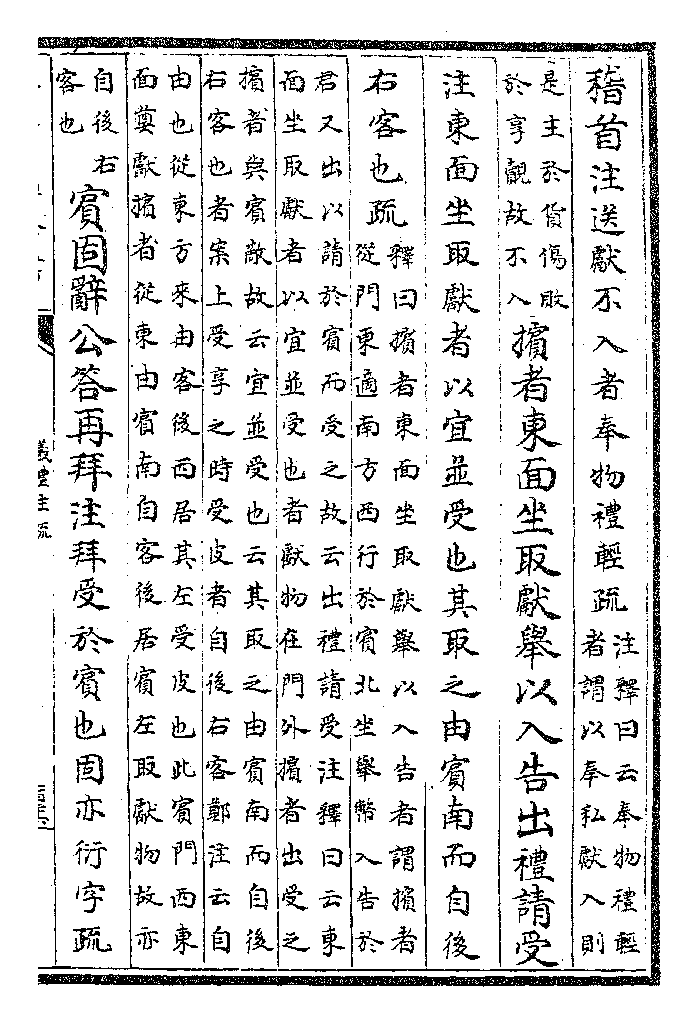 稽首注送獻不入者奉物禮輕疏
注釋曰云奉物禮輕
者謂以奉私獻入則
是主於貨傷敗
於享覿故不入
擯者東面坐取獻舉以入告出禮請受
注東面坐取獻者以宜並受也其取之由賓南而自後
右客也疏
釋曰擯者東面坐取獻舉以入告者謂擯者
從門東適南方西行於賓北坐舉幣入告於
君又出以請於賓而受之故云出禮請受注釋曰云東
面坐取獻者以宜並受也者獻物在門外擯者出受之
擯者與賓敵故云宜並受也云其取之由賓南而自後
右客也者案上受享之時受皮者自後右客鄭注云自
由也從東方來由客後西居其左受皮也此賓門西東
面奠獻擯者從東由賓南自客後居賓左取獻物故亦
自後右
客也
賓固辭公答再拜注拜受於賓也固亦衍字疏
儀禮注疏